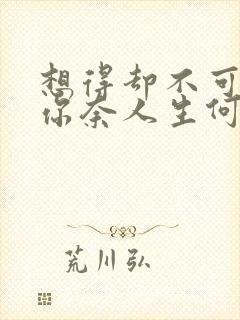 想得却不可
你奈人生何
荒川弘